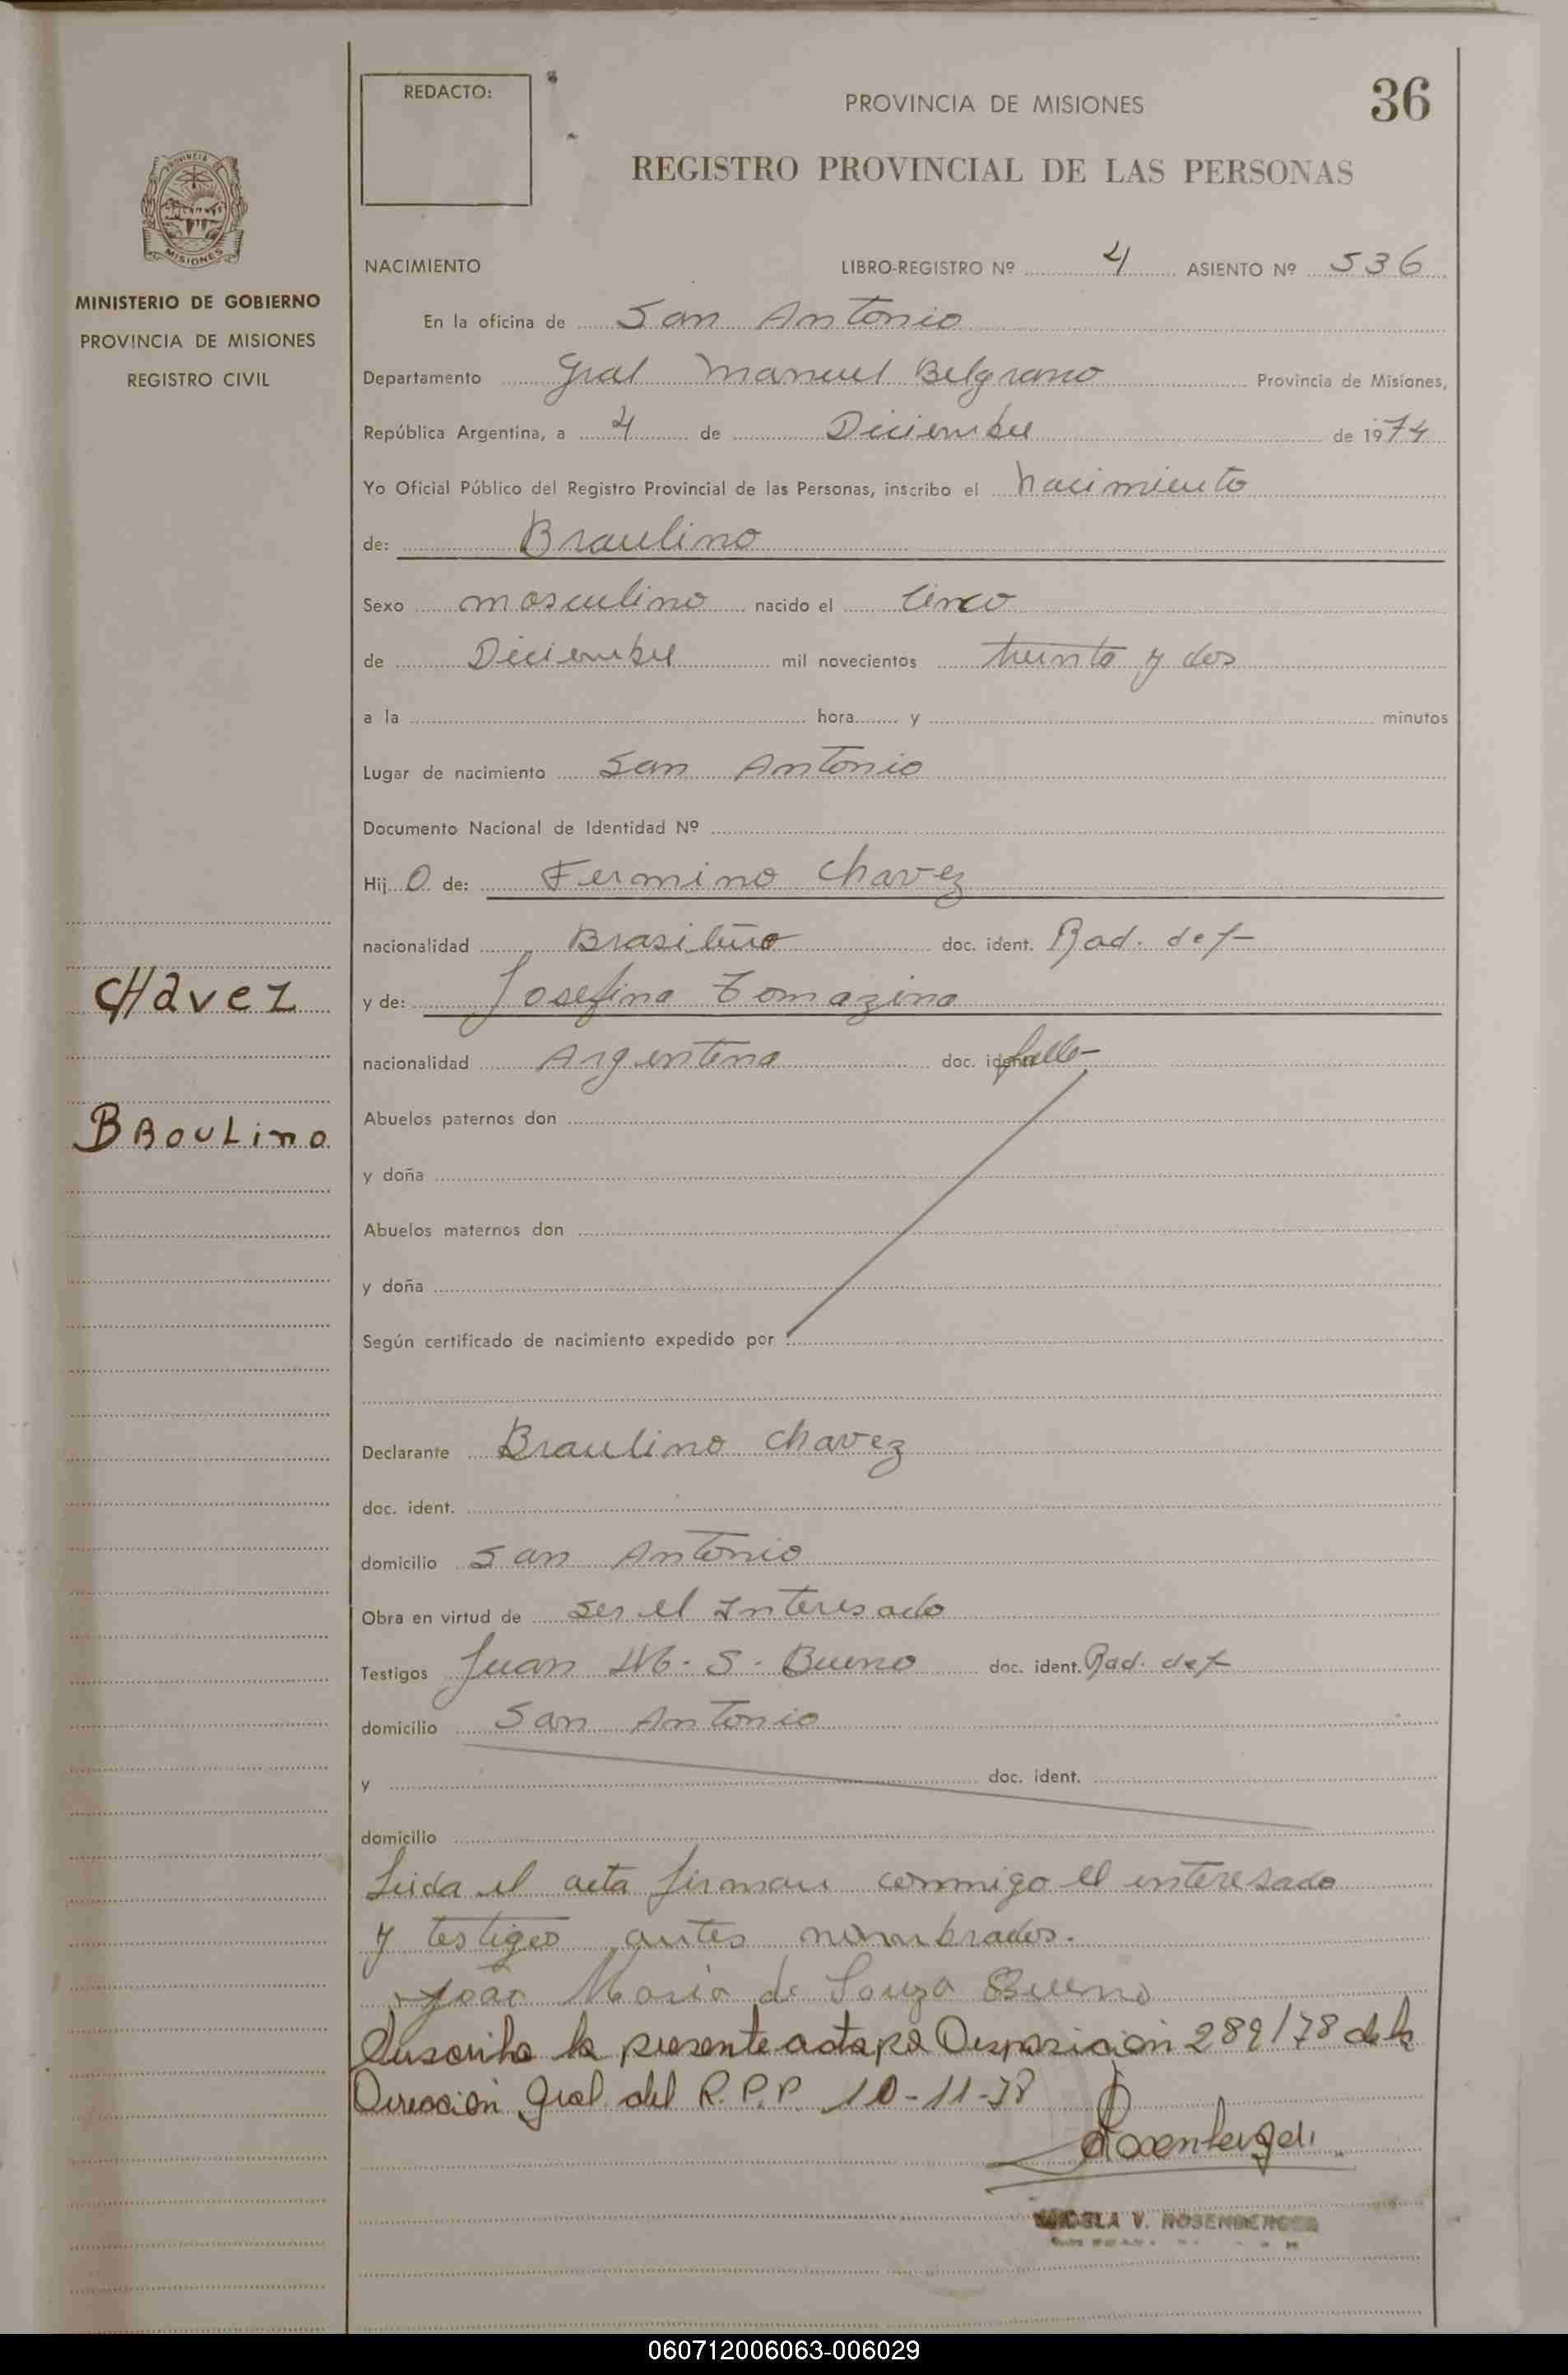 REDACTO:
PROVINCIA DE MISIONES
36
REGISTRO PROVINCIAL DE LAS PERSONAS
MISIONES
MINISTERIO DE GOBIERNO
PROVINCIA DE MISIONES
REGISTRO CIVIL
NACIMIENTO LIBRO-REGISTRO Nº 4 ASIENTO Nº 536
En la oficina de San Antonio
Departamento Gral Manuel Belgrano Provincia de Misiones,
República Argentina, a 4 de Diciembre de 1974
Yo Oficial Público del Registro Provincial de las Personas, inscribo el nacimiento
de: Braulino
Sexo masculino nacido el cinco
de Diciembre mil novecientos treinta y dos
a la hora y minutos
Lugar de nacimiento San Antonio
Documento Nacional de Identidad Nº
Hij o de: Fermino Chavez
nacionalidad Brasileño doc. ident. Rad. def-
CHavez
y de: Josefina Tomazina
nacionalidad Argentina doc. ident.
BRAULino
Abuelos paternos don
y doña
Abuelos maternos don
y doña
Según certificado de nacimiento expedido por
Declarante Braulino Chavez
doc. ident.
domicilio San Antonio
Obra en virtud de ser el Interesado
Testigos Juan M. S. Bueno doc. ident. Rad. def
domicilio San Antonio
y doc. ident.
domicilio
Leida el acta firman conmigo el interesado
y testigos antes nombrados.
João Maria de Souza Bueno
Suscribo la presente acta por Disposición 289/78 de la
Dirección Gral del R.P.P. 10-11-78
Rosenberger
V. ROSENBERGER
060712006063-006029